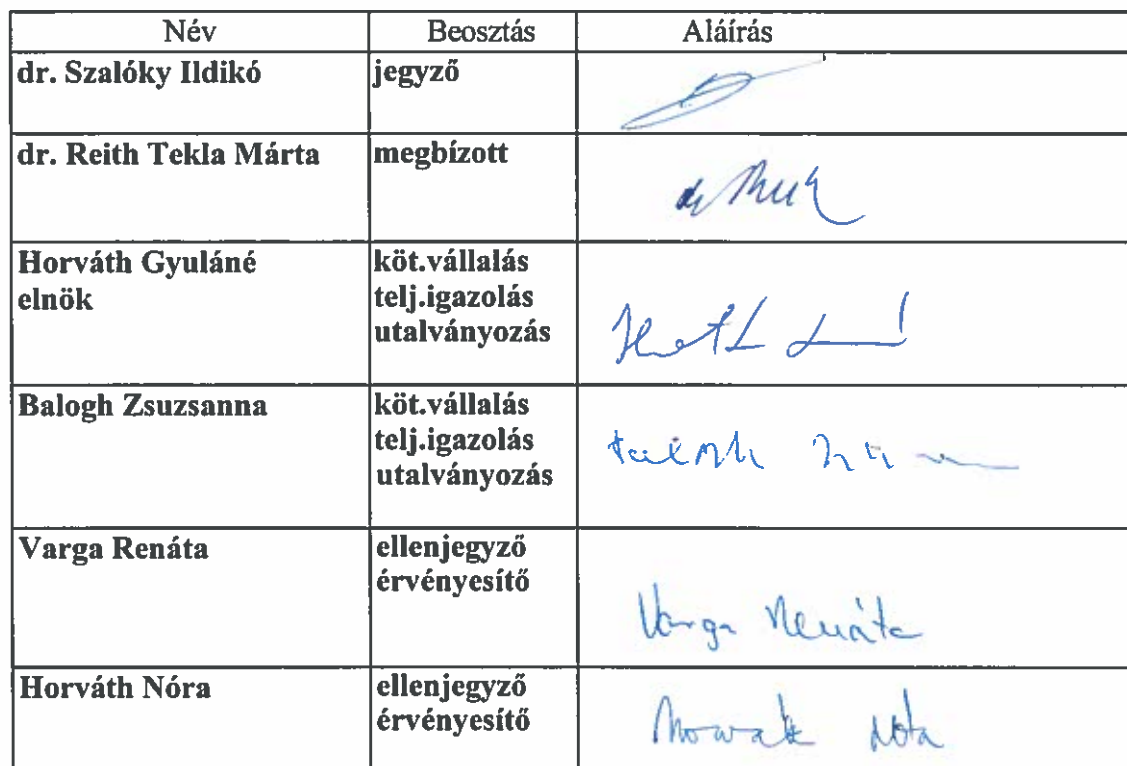 Név Beosztás Aláírás
dr. Szalóky Ildikó jegyző
dr. Reith Tekla Márta megbízott
Horváth Gyuláné köt.vállalás
elnök telj.igazolás
utalványozás
Balogh Zsuzsanna köt.vállalás
telj.igazolás
utalványozás
Varga Renáta ellenjegyző
érvényesítő
Varga Renáta
Horváth Nóra ellenjegyző
érvényesítő